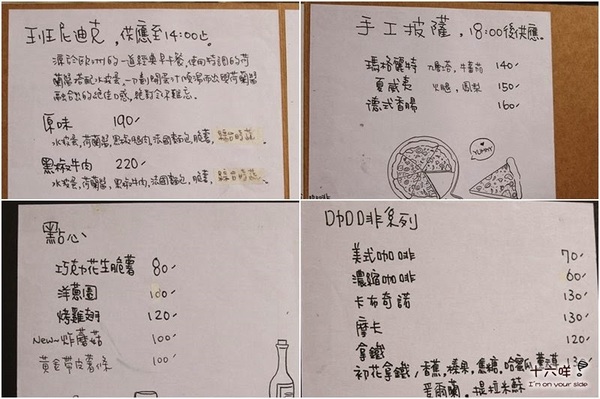 班尼迪克，供應至14:00止。
源於歐州的一道經典早午餐，使用特調的荷
蘭醬搭配水波蛋，一刀劃開蛋汁
融合的絕佳口感，絕對令你難忘。
原味 190
水波蛋，荷蘭醬，里肌腿肉，法國麵包，脆薯，綜合時蔬。
黑椒牛肉 220
水波蛋，荷蘭醬，黑椒牛肉，法國麵包，脆薯，綜合時蔬。
手工披薩，18:00後供應。
瑪格麗特 九層塔，牛蕃茄 140
夏威夷 火腿，鳳梨 150
德式香腸 160
YUMMY
點心
巧克力花生脆薯 80
洋蔥圈 100
烤雞翅 120
New~炸蘑菇 100
黃金帶皮薯條 100
咖啡系列
美式咖啡 70
濃縮咖啡 60
卡布奇諾 130
摩卡 130
拿鐵 120
初花拿鐵，香蕉，榛果，焦糖，
愛爾蘭，提拉米蘇
十六咩
I'm on your side